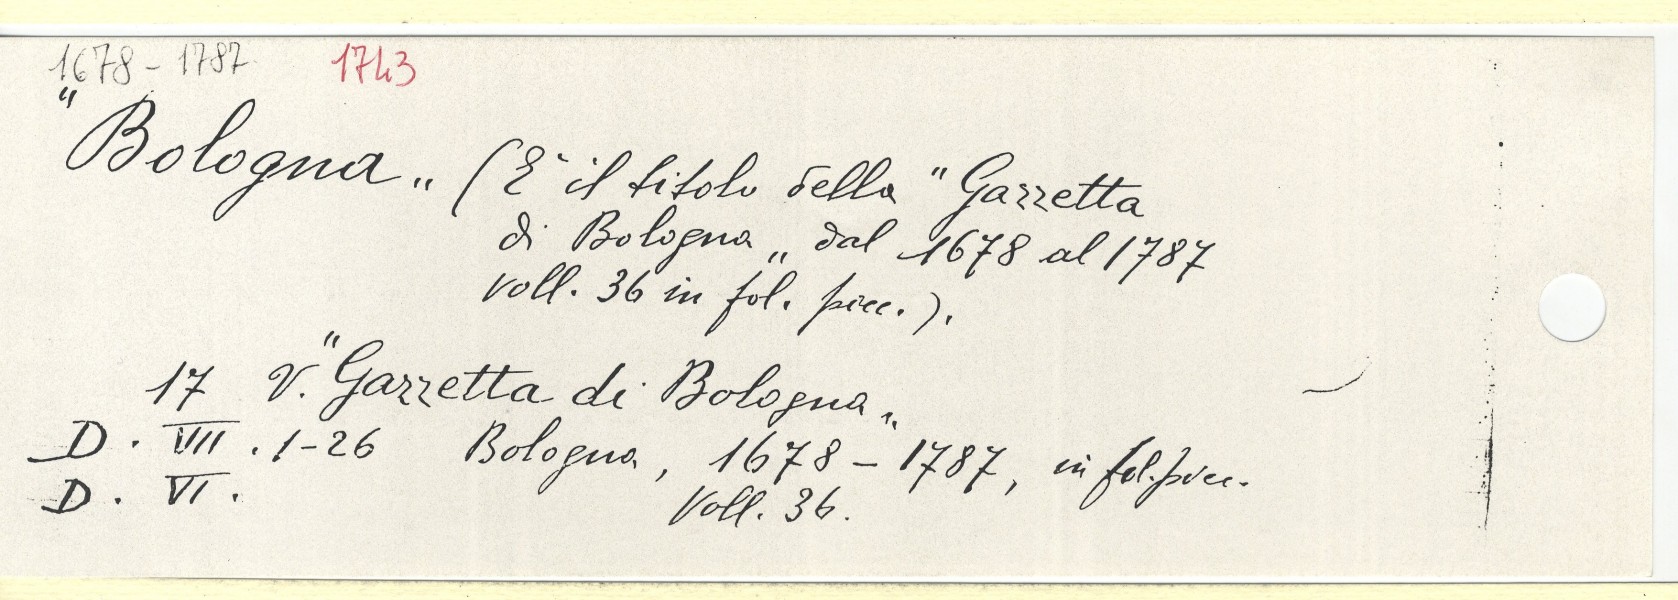 1678-1787 1743
"Bologna„ (È il titolo della "Gazzetta
di Bologna„ dal 1678 al 1787
voll. 36 in fol. picc.).
17 V. "Gazzetta di Bologna„
D. VII. 1-26 Bologna, 1678-1787, in fol. picc.
D. VI. Voll. 36.